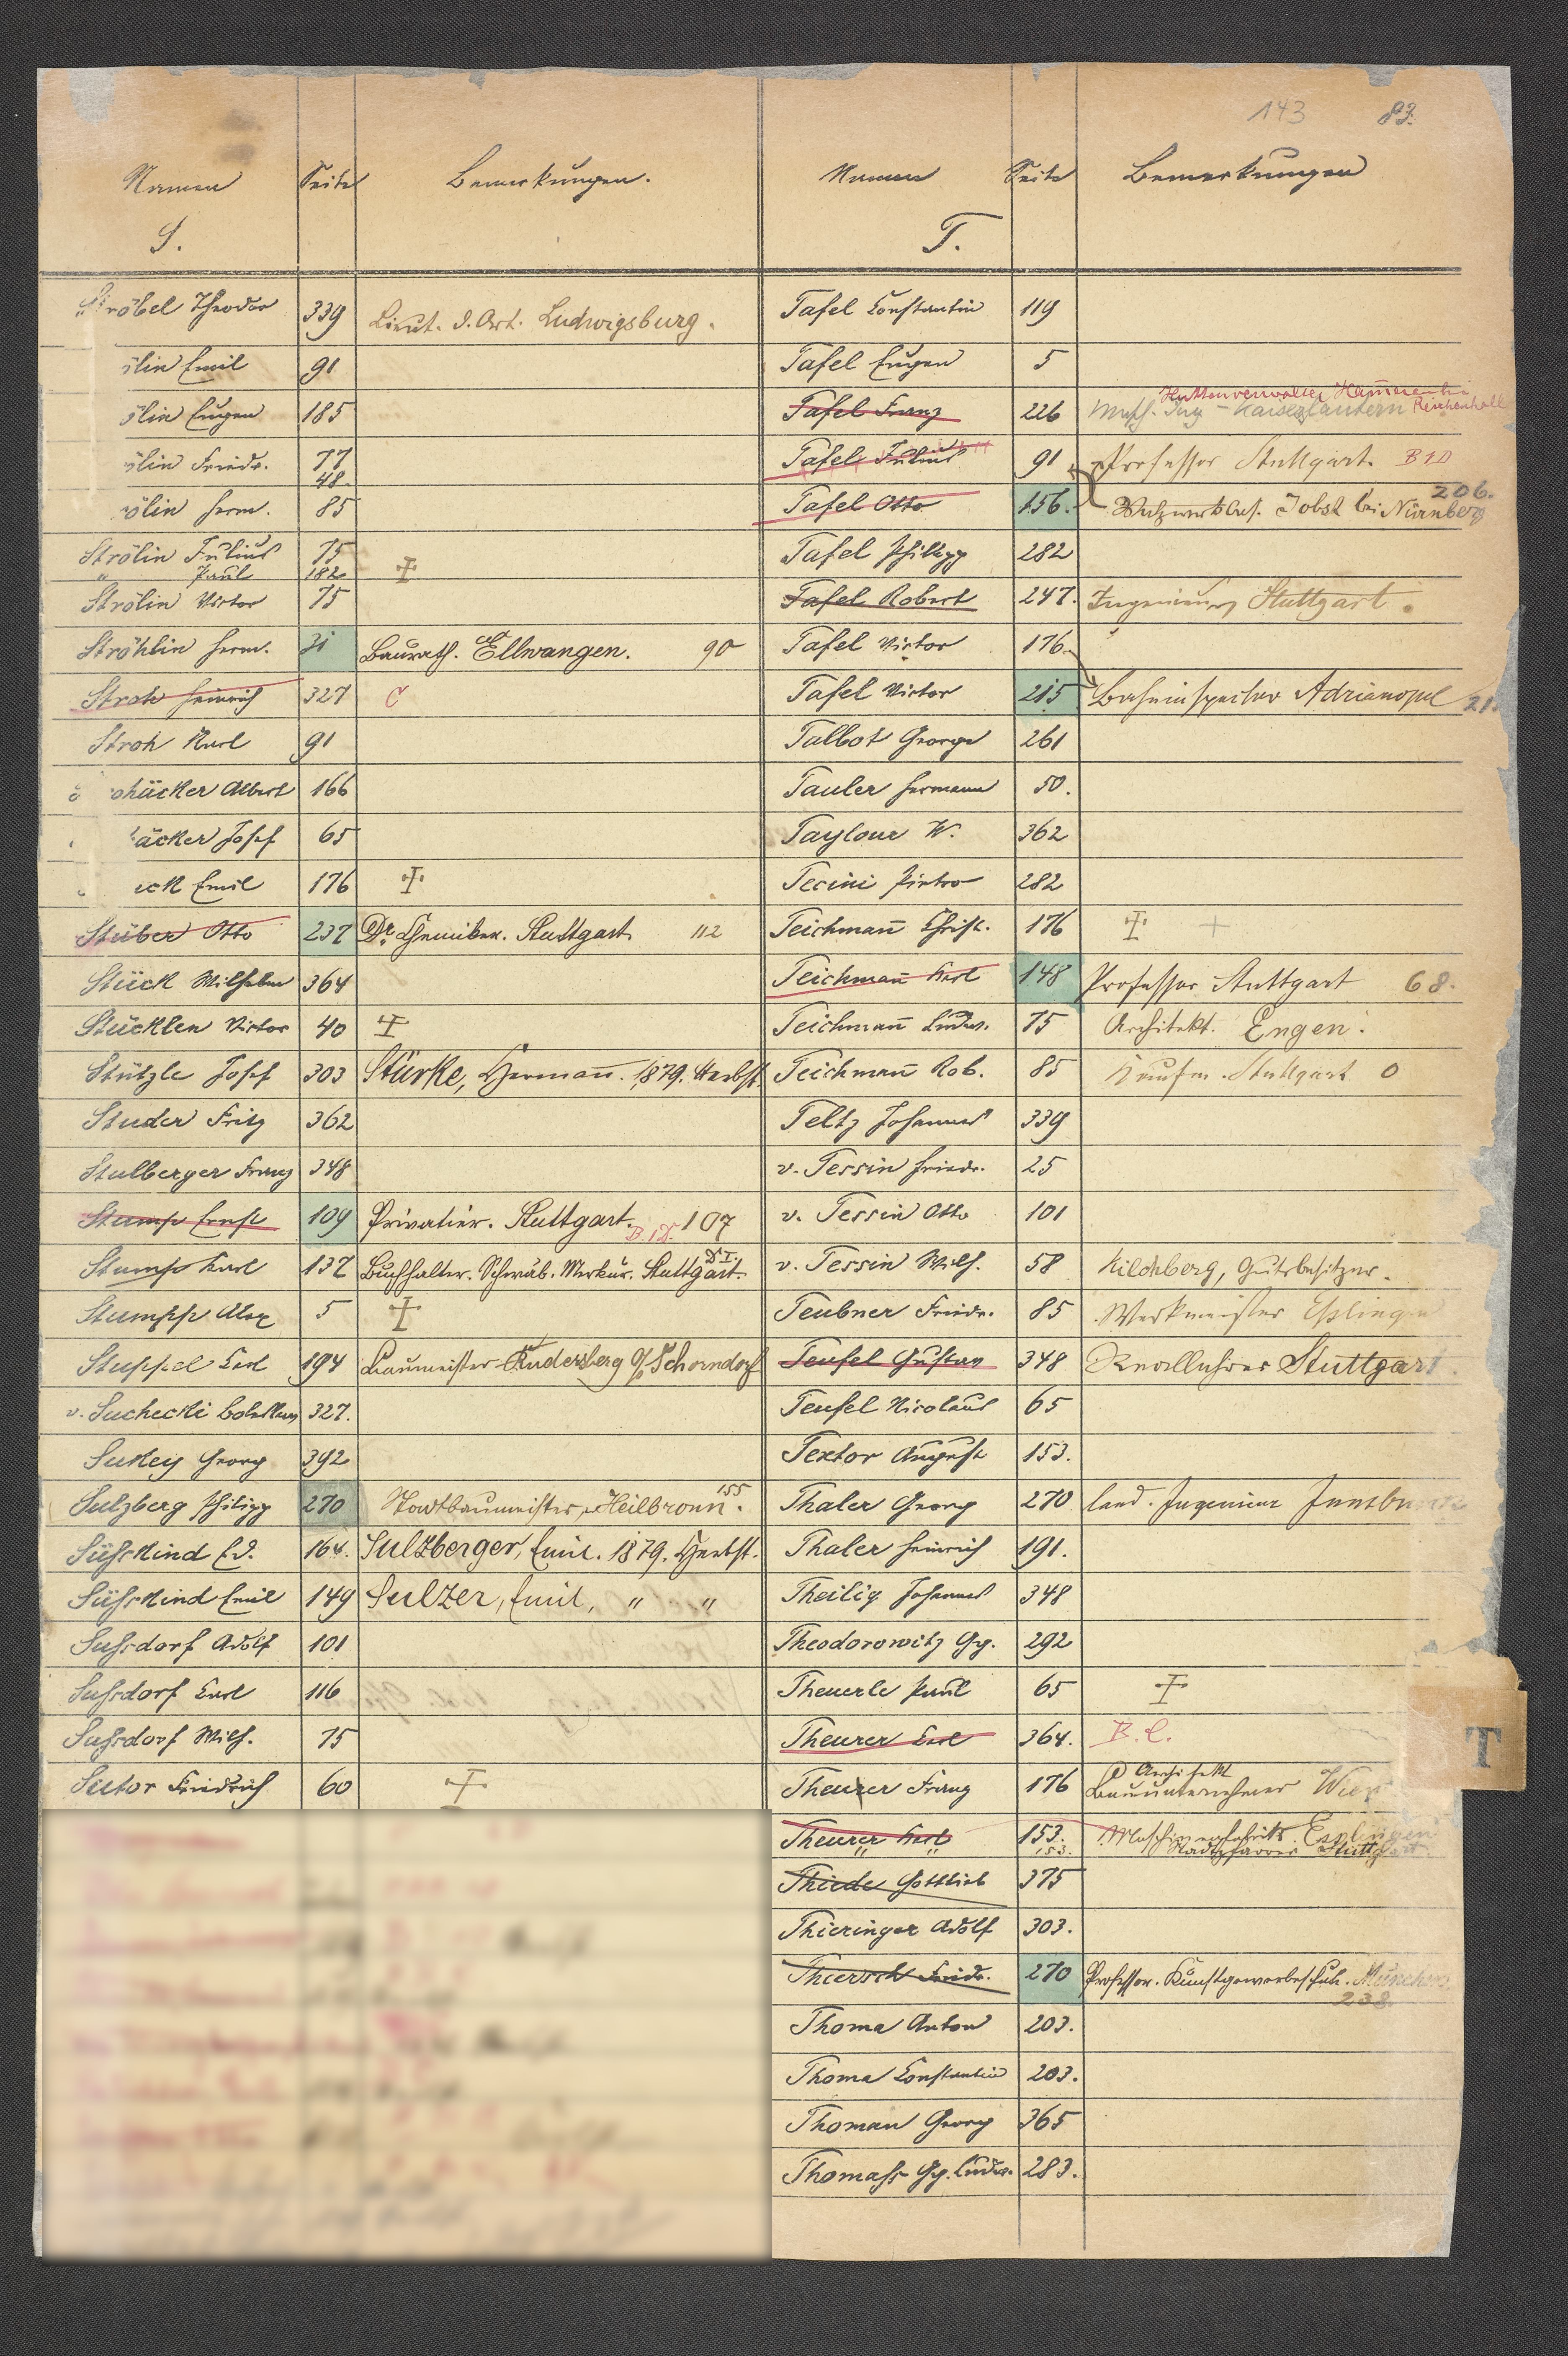 143 83.
Namen Seite Bemerkungen.
S.
Ströbel Theodor 339 Lieut. d. Art. Ludwigsburg.
ölin Emil 91
ölin Eugen 185
ölin Friedr. 77
48.
ölin Herm. 85
Strölin Julius 75
" Paul 182
Strölin Victor 75
Ströhlin Herm. 31 Baurath. Ellwangen. 90
Stroh Heinrich 327 C
Stroh Karl 91
ohäcker Albert 166
äcker Josef 65
ick Emil 176
Stüber Otto 237 Dr. Chemiker. Stuttgart 112
Stück Wilhelm 364
Stücklen Victor 40
Stützle Josef 303 Stürke, Hermañ. 1879. Herbst.
Studer Fritz 362
Stulberger Franz 348
Stump Ernst 109 Privatier. Stuttgart. B.1.D. 107
Stump Karl 137 Buchhalter. Schwäb. Merkur. Stuttgart.
Stumpp Alex 5
Stuppel Carl 194 Baumeister Rudersberg O/A Schorndorf
v. Suchecki 327.
Sukey Georg 392
Sulzberg Philipp 270 Stadtbaumeister, Heilbronn. 155
Süsskind Ed. 164. Sulzberger, Emil. 1879. Herbst.
Süsskind Emil 149 Sulzer, Emil, " "
Sussdorf Adolf 101
Sussdorf Carl 116
Sussdorf Wilh. 75
Sutor Friedrich 60
Namen Seite Bemerkungen
T.
Tafel Constantin 119
Tafel Eugen 5
Tafel Franz 226 Hüttenverwalter Reichenhall
Kaiserslautern
Tafel Julius 91 Professor Stuttgart. B1D
Tafel Otto 156. Jobst bei Nürnberg 206.
Tafel Philipp 282
Tafel Robert 247. Ingenieur, Stuttgart.
Tafel Victor 176.
Tafel Victor 215 Bahninspector Adrianopel 21
Talbot George 261
Tauler Hermann 50.
Taylour W. 362
Tecini Pietro 282
Teichmañ Christ. 176
Teichmañ Karl 148 Professor Stuttgart 68.
Teichmañ Ludw. 75 Architekt. Engen.
Teichmañ Rob. 85 Kaufm. Stuttgart 0
Teltz Johannes 339
v. Tessin Friedr. 25
v. Tessin Otto 101
v. Tessin Wilh. 58 Kilchberg, Gutsbesitzer.
Teubner Friedr. 85 Werkmeister Esslingen
Teufel Gustav 348 Reallehrer Stuttgart.
Teufel Nicolaus 65
Textor August 153.
Thaler Georg 270 land. Ingenieur Innsbruck
Thaler Heinrich 191.
Theilig Johannes 348
Theodorowitz Gg. 292
Theuerle Paul 65
Theurer Carl 364. B.C.
Theurer Franz 176 Architekt
Bauunternehmer Wien
Theurer Karl 153. Maschinenfabrik Esslingen
" " 153. Stadtpfarrer Stuttgart
Thiede Gottlieb 375
Thieringer Adolf 303.
Thiersch Friedr. 270 Professor. Kunstgewerbeschule. München
238
Thoma Anton 203.
Thoma Constantin 203.
Thoman Georg 365
Thomass Gg. Ludw. 283.
T